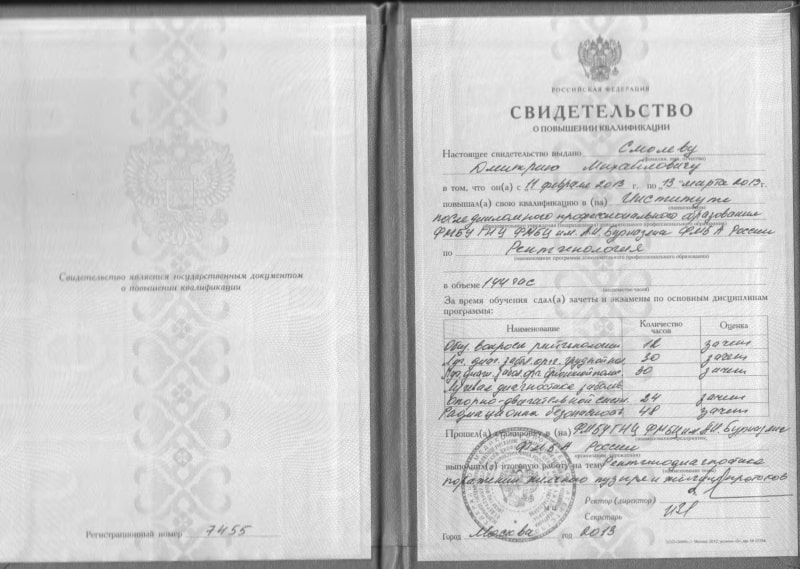 Свидетельство является государственным документом
о повышении квалификации
Регистрационный номер 7455
РОССИЙСКАЯ ФЕДЕРАЦИЯ
СВИДЕТЕЛЬСТВО
О ПОВЫШЕНИИ КВАЛИФИКАЦИИ
Настоящее свидетельство выдано Смолеву
(фамилия, имя, отчество)
Дмитрию Михайловичу
в том, что он(а) с 11 февраля 2013 г. по 13 марта 2013 г.
повышал(а) свою квалификацию в (на) Институте
(наименование)
последипломного профессионального образования
ФМБУ ГНЦ ФМБЦ им. А.И. Бурназяна ФМБА России
по Рентгенология
(наименование программы дополнительного профессионального образования)
в объеме 144 час
(количество часов)
За время обучения сдал(а) зачеты и экзамены по основным дисциплинам
программы:
Наименование Количество часов Оценка
Общ. вопросы рентгенологии 12 зачет
диаг. забол. орг. грудной 30 зачет
диагн. забол. орг. 30 зачет
Лучевая диагностика заболев.
опорно-двигательной сист. 24 зачет
Радиационная безопасность 48 зачет
Прошел(а) стажировку в (на) ФМБУ ГНЦ ФМБЦ им. А.И. Бурназяна
(наименование предприятия,
ФМБА России
организации, учреждения)
выполнил(а) итоговую работу на тему Рентгенодиагностика
(наименование темы)
поражений желчного пузыря и желчных протоков
Ректор (директор)
М.П.
Секретарь
Город Москва год 2013